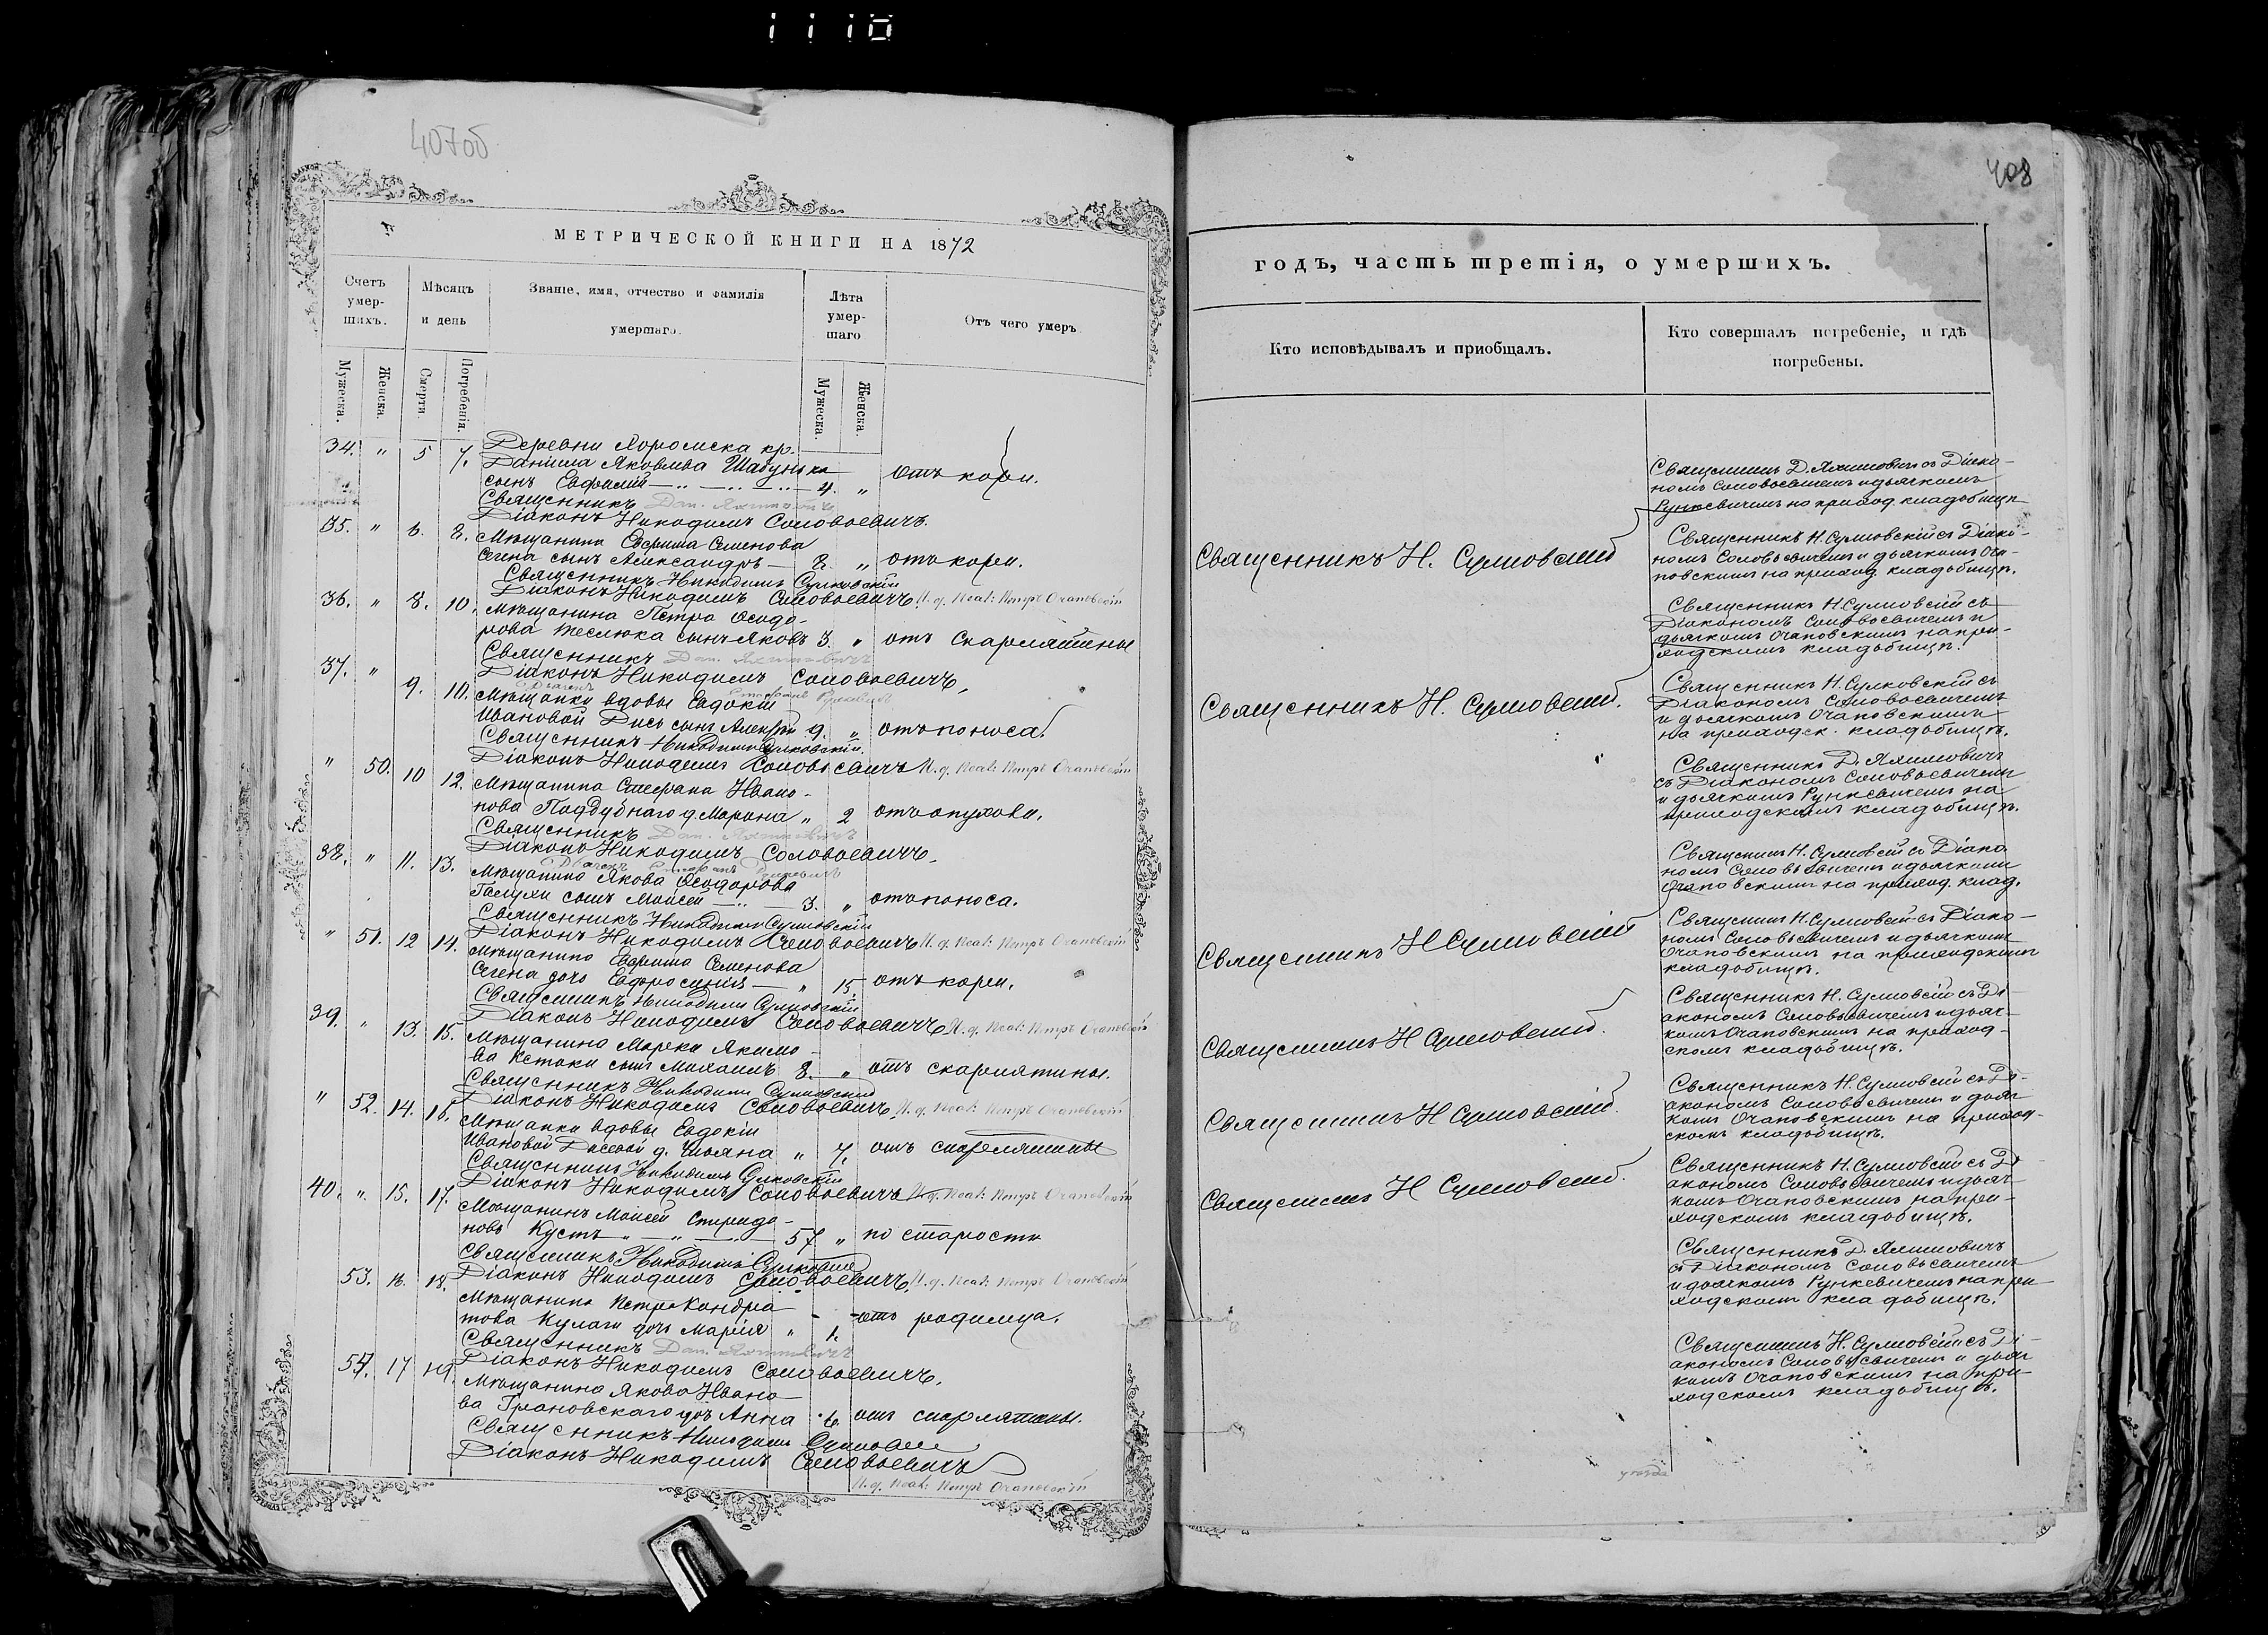 1110
407об
МЕТРИЧЕСКОЙ КНИГИ НА 1872
Счетъ умершихъ.
Мѣсяцъ и день
Званіе, имя, отчество и фамилія умершаго.
Лѣта умершаго
Отъ чего умеръ
Мужеска.
Женска.
Смерти.
Погребенія.
Мужеска.
Женска.
34. " 5 7. Деревни Хоромска кр.
Даніила Яковлева
сынъ Евфимій 4. " отъ кори.
Священникъ
Діаконъ Никодимъ Соловьевичъ.
35. " 6. 8. Мѣщанина Ефима Семенова
сынъ Александръ 2. " отъ кори.
Священникъ Никодимъ Сулковскій
Діаконъ Никодимъ Соловьевичъ И. д. Псал: Петръ Очаповскій
36. " 8. 10. Мѣщанина Петра Ѳеодо-
рова Теслюка сынъ Яковъ 3. " отъ скарлатины
Священникъ
Діаконъ Никодимъ Соловьевичъ,
37. " 9. 10. Мѣщанки вдовы Евдокіи
Ивановой сынъ Алексѣй 9. " отъ поноса.
Священникъ Никодимъ Сулковскій.
Діаконъ Никодимъ Соловьевичъ И. д. Псал: Петръ Очаповскій
" 50. 10 12. Мѣщанина Стефана Ивано-
нова Поддубнаго д. Марина " 2 отъ опухоли.
Священникъ
Діаконъ Никодимъ Соловьевичъ.
38. " 11. 13. Мѣщанина Якова Ѳеодорова
сынъ Моисей 3. " отъ поноса.
Священникъ Никодимъ Сулковскій
Діаконъ Никодимъ Соловьевичъ И. д. Псал: Петръ Очаповскій
" 51. 12 14. Мѣщанина Ефима Семенова
дочь Ефросинія " 15 отъ кори.
Священникъ Никодимъ Сулковскій
Діаконъ Никодимъ Соловьевичъ И. д. Псал: Петръ Очаповскій
39. " 13. 15. Мѣщанина Марка Якимо-
ва сынъ Михаилъ 8. " отъ скарлатины.
Священникъ Никодимъ Сулковскій
Діаконъ Никодимъ Соловьевичъ, И. д. Псал: Петръ Очаповскій
" 52. 14. 16. Мѣщанки вдовы Евдокіи
Ивановой д. " 7. отъ скарлатины
Священникъ Никодимъ Сулковскій
Діаконъ Никодимъ Соловьевичъ И. д. Псал: Петръ Очаповскій
40. " 15. 17. Мѣщанинъ Моисей Спиридо-
новъ Кустъ 57 " по старости
Священникъ Никодимъ Сулковскій
Діаконъ Никодимъ Соловьевичъ, И. д. Псал: Петръ Очаповскій
53. 16. 18. Мѣщанина Петра Кондра
това Кулаги дочь Марія " 1. отъ родимца.
Священникъ
Діаконъ Никодимъ Соловьевичъ.
54. 17 19. Мѣщанина Якова Ивано-
ва Грановскаго дочь Анна 6. отъ скарлатины.
Священникъ Никодимъ Сулковскій
Діаконъ Никодимъ Соловьевичъ
И. д. Псал: Петръ Очаповскій
408
годъ, часть третія, о умершихъ.
Кто исповѣдывалъ и пріобщалъ.
Кто совершалъ погребеніе, и гдѣ погребены.
Священникъ Д. Яхимовичъ съ Діако-
номъ Соловьевичемъ и дьячкомъ
Рункевичемъ на приход. кладбищѣ
Священникъ Н. Сулковскій
Священникъ Н. Сулковскій съ Діако-
номъ Соловьевичемъ и дьячкомъ Оча-
повскимъ на приход. кладбищѣ.
Священникъ Н. Сулковскій съ
Діакономъ Соловьевичемъ и
дьячкомъ Очаповскимъ на при-
ходскомъ кладбищѣ.
Священникъ Н. Сулковскій.
Священникъ Н. Сулковскій съ
Діакономъ Соловьевичемъ
и дьячкомъ Очаповскимъ
на приходск. кладбищѣ.
Священникъ Д. Яхимовичъ
съ Діакономъ Соловьевичемъ
и дьячкомъ Рункевичемъ на
приходскомъ кладбищѣ.
Священникъ Н. Сулковскій съ Діако
номъ Соловьевичемъ и дьячкомъ
Очаповскимъ на приход. клад.
Священникъ Н Сулковскій
Священникъ Н. Сулковскій съ Діако-
номъ Соловьевичемъ и дьячкомъ
Очаповскимъ на приходскомъ
кладбищѣ.
Священникъ Н Сулковскій.
Священникъ Н. Сулковскій съ Ді-
акономъ Соловьевичемъ и дьяч-
комъ Очаповскимъ на приход-
скомъ кладбищѣ.
Священникъ Н Сулковскій.
Священникъ Н. Сулковскій съ Ді-
акономъ Соловьевичемъ и дьяч
комъ Очаповскимъ на приход-
скомъ кладбищѣ.
Священникъ Н Сулковскій.
Священникъ Н. Сулковскій съ Ді
акономъ Соловьевичемъ и дьяч-
комъ Очаповскимъ на при-
ходскомъ кладбищѣ.
Священникъ Д. Яхимовичъ
съ Діакономъ Соловьевичемъ
и дьячкомъ Рункевичемъ на при-
ходскомъ кладбищѣ.
Священникъ Н. Сулковскій съ Ді-
акономъ Соловьевичемъ и дьяч
комъ Очаповскимъ на при-
ходскомъ кладбищѣ.